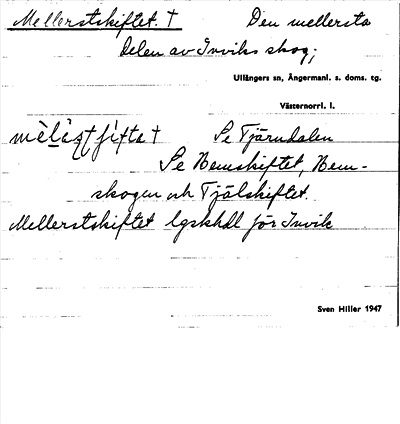 Mellerstskiftet. † Den mellersta
delen av Inviks skog;
Ullångers sn, Ångermanl. s. doms. tg.
Västernorrl. l.
Se Tjärndalen
Se Hemskiftet, Hem-
skogen och Tjälskiftet.
Mellerstskiftet lgskhdl för Invik
Sven Hiller 1947